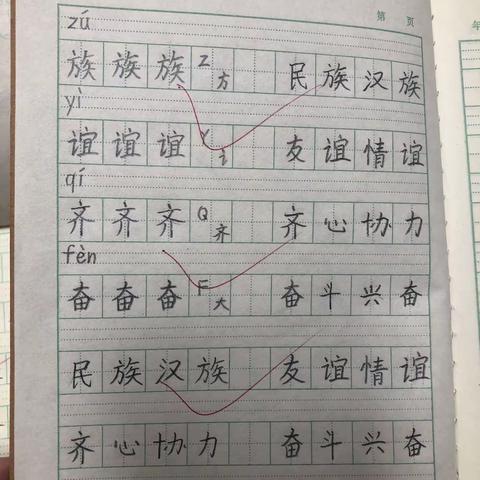 第 页
zú
族 族 族 Z 方 民 族 汉 族
yì
谊 谊 谊 Y 讠 友 谊 情 谊
qí
齐 齐 齐 Q 齐 齐 心 协 力
fèn
奋 奋 奋 F 大 奋 斗 兴 奋
民 族 汉 族 友 谊 情 谊
齐 心 协 力 奋 斗 兴 奋
年